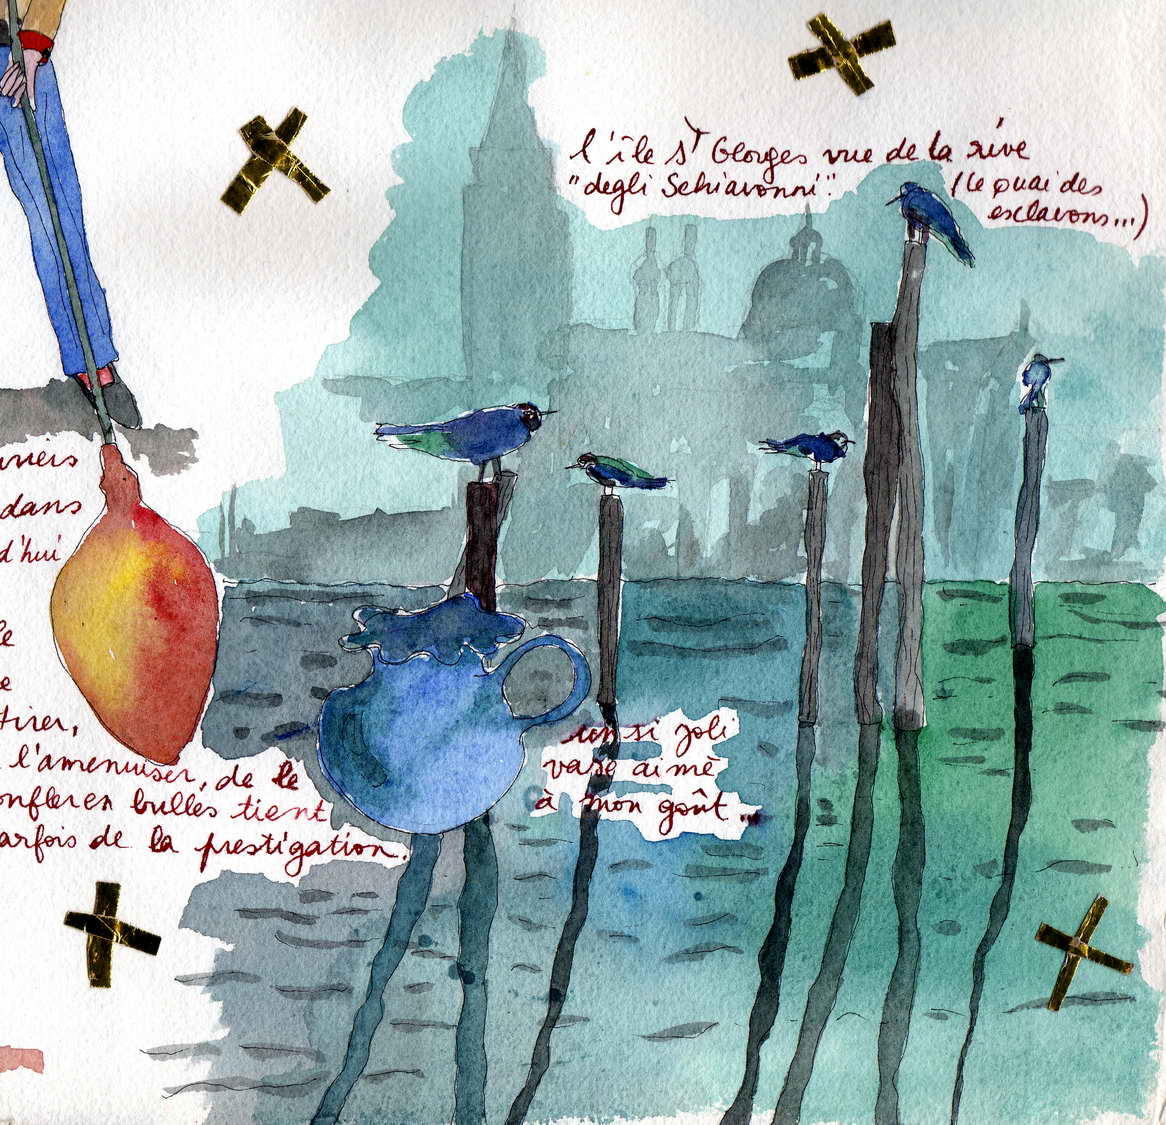 l'île St Georges vue de la rive
"degli Schiavonni".. (le quai des
esclavons...)
dans
d'hui
le
tirer,
l'amenuiser, de le
onfler en bulles tient
arfois de la prestigation.
un si joli
vase aimé
à mon goût...